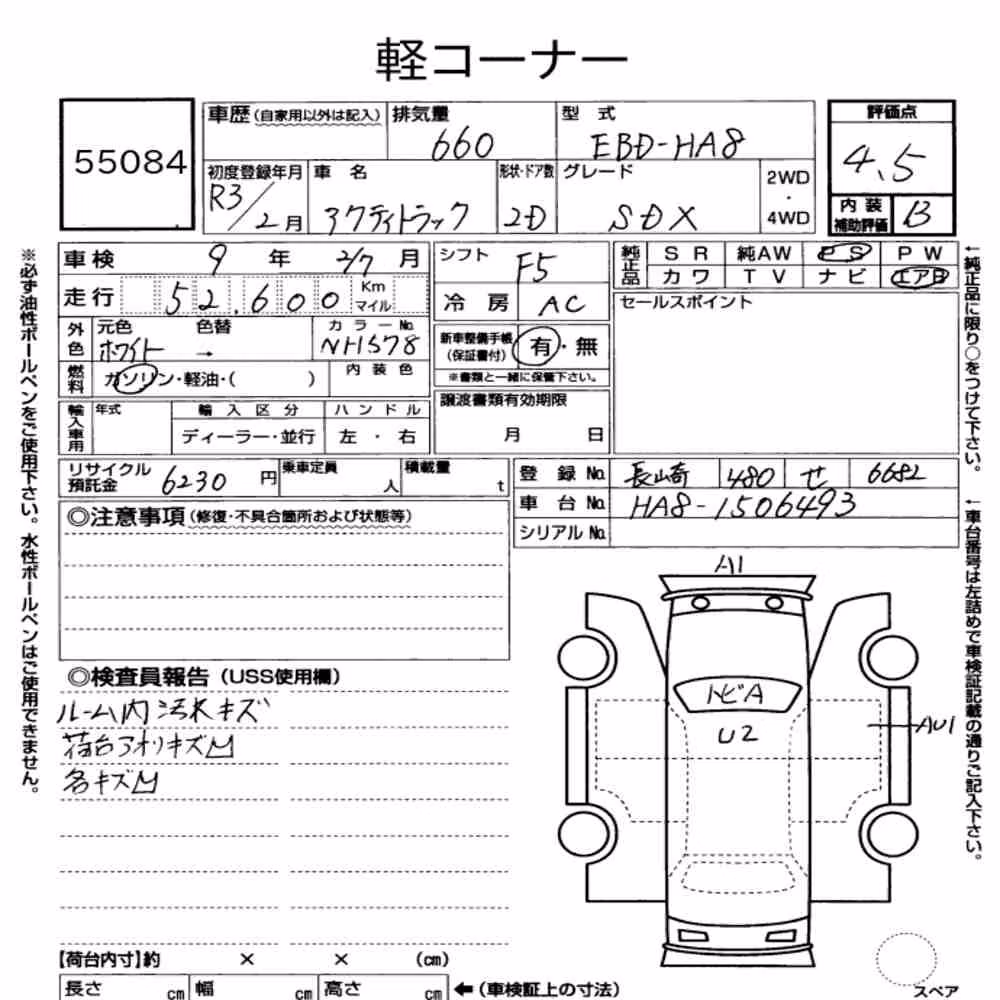 軽コーナー
55084
車歴(自家用以外は記入) 排気量 660 型式 EBD-HA8 評価点 4.5
初度登録年月 R3/2月 車名 アクティトラック 形状・ドア数 2D グレード SDX 2WD・4WD 内装補助評価 B
車検 9年 2/7月 シフト F5 純正品 SR 純AW PS PW
走行 52,600 Km マイル 冷房 AC カワ TV ナビ エアB
外色 元色 ホワイト 色替 → カラーNo. NH578 新車整備手帳(保証書付) 有・無 セールスポイント
燃料 ガソリン・軽油・( ) 内装色 ※書類と一緒に保管下さい。
輸入車用 年式 輸入区分 ハンドル 譲渡書類有効期限
ディーラー・並行 左・右 月 日
リサイクル預託金 6230円 乗車定員 人 積載量 t 登録No. 長崎 480 せ 6682
車台No. HA8-1506493
シリアルNo.
◎注意事項(修復・不具合箇所および状態等)
A1
トビA
U2
AU1
◎検査員報告(USS使用欄)
ルーム内 汚れ キズ
荷台アオリキズ凹
各キズ凹
【荷台内寸】約 × × (cm)
長さ cm 幅 cm 高さ cm ←(車検証上の寸法)
スペア
※必ず油性ボールペンをご使用下さい。水性ボールペンはご使用できません。
←純正品に限り○をつけて下さい。
←車台番号は左詰めで車検証記載の通りご記入下さい。